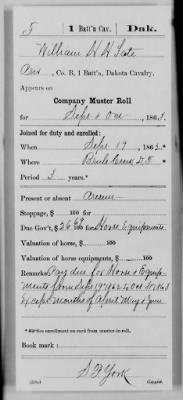 5 | 1 Batt'n Cav. | Dak.
William H H Fate
, Co. B, 1 Batt'n, Dakota Cavalry.
Appears on
Company Muster Roll
for Sept & Oct, 1863.
Joined for duty and enrolled:
When Sept 19, 1862.*
Where Brule Creek, D.T.
Period 3 years.*
Present or absent
Stoppage, $ 100 for
Due Gov't, $ 100 for Horse Equipments
Valuation of horse, $ 100
Valuation of horse equipments, $ 100
Remarks: Pay due for Horse & Equip-
ments from Sept 19 1862 to Oct 31 1863
Except months of April May & June
* See enrollment on card from muster-in roll.
Book mark:
S D York
Copyist.